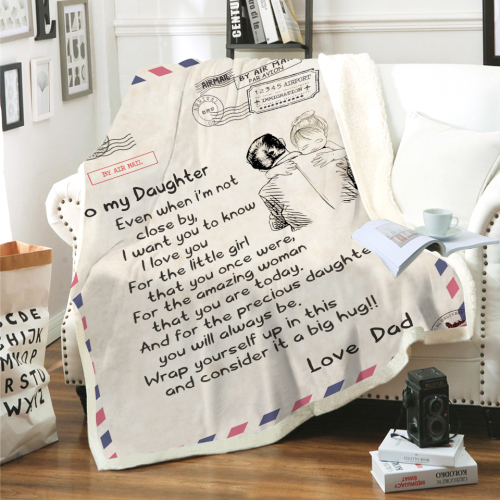 CENTURY
AIRMAIL
BY AIR MAIL
PAR AVION
12345 AIRPORT
IMMIGRATION
BY AIR MAIL
o my Daughter
Even when i'm not
close by,
I want you to know
I love you
For the little girl
that you once were,
For the amazing woman
that you are today.
And for the precious daughte
you will always be.
Wrap yourself up in this
and consider it a big hug!!
Love Dad